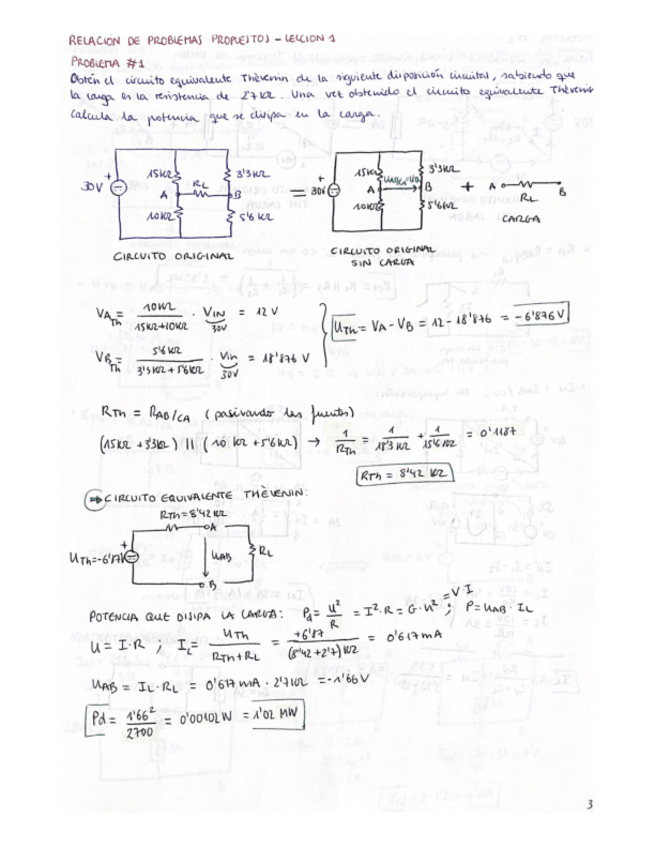 RELACION DE PROBLEMAS PROPUESTOS - LECCION 1
PROBLEMA #1
Obtén el circuito equivalente Thèvenin de la siguiente disposición circuital, sabiendo que
la carga es la resistencia de 2'7 KΩ. Una vez obtenido el circuito equivalente Thèvenin
calcula la potencia que se disipa en la carga.
30V + 15KΩ 3'3KΩ A RL B 10KΩ 5'6KΩ
= 30V + 15KΩ 3'3KΩ A B 10KΩ 5'6KΩ + A RL B
CARGA
CIRCUITO ORIGINAL
CIRCUITO ORIGINAL
SIN CARGA
VA Th = 10KΩ / 15KΩ+10KΩ · VIN 30V = 12 V
UTh = VA - VB = 12 - 18'876 = -6'876 V
VB Th = 5'6KΩ / 3'3KΩ + 5'6KΩ · Vin 30V = 18'876 V
RTh = RAB/CA (pasivando las fuentes)
(15KΩ + 3'3KΩ) || (10 KΩ + 5'6KΩ) → 1/RTh = 1/18'3 KΩ + 1/15'6 KΩ = 0'1187
RTh = 8'42 KΩ
⇒ CIRCUITO EQUIVALENTE THÈVENIN:
RTh = 8'42 KΩ
A
UTh = -6'87V + UAB RL
B
POTENCIA QUE DISIPA LA CARGA: Pd = U²/R = I²·R = G·U² = V·I ; P = UAB · IL
U = I·R ; IL = UTh / RTh + RL = +6'87 / (8'42 + 2'7) KΩ = 0'617 mA
UAB = IL · RL = 0'617 mA · 2'7 KΩ = -1'66 V
Pd = 1'66² / 2700 = 0'00102 W = 1'02 MW
3